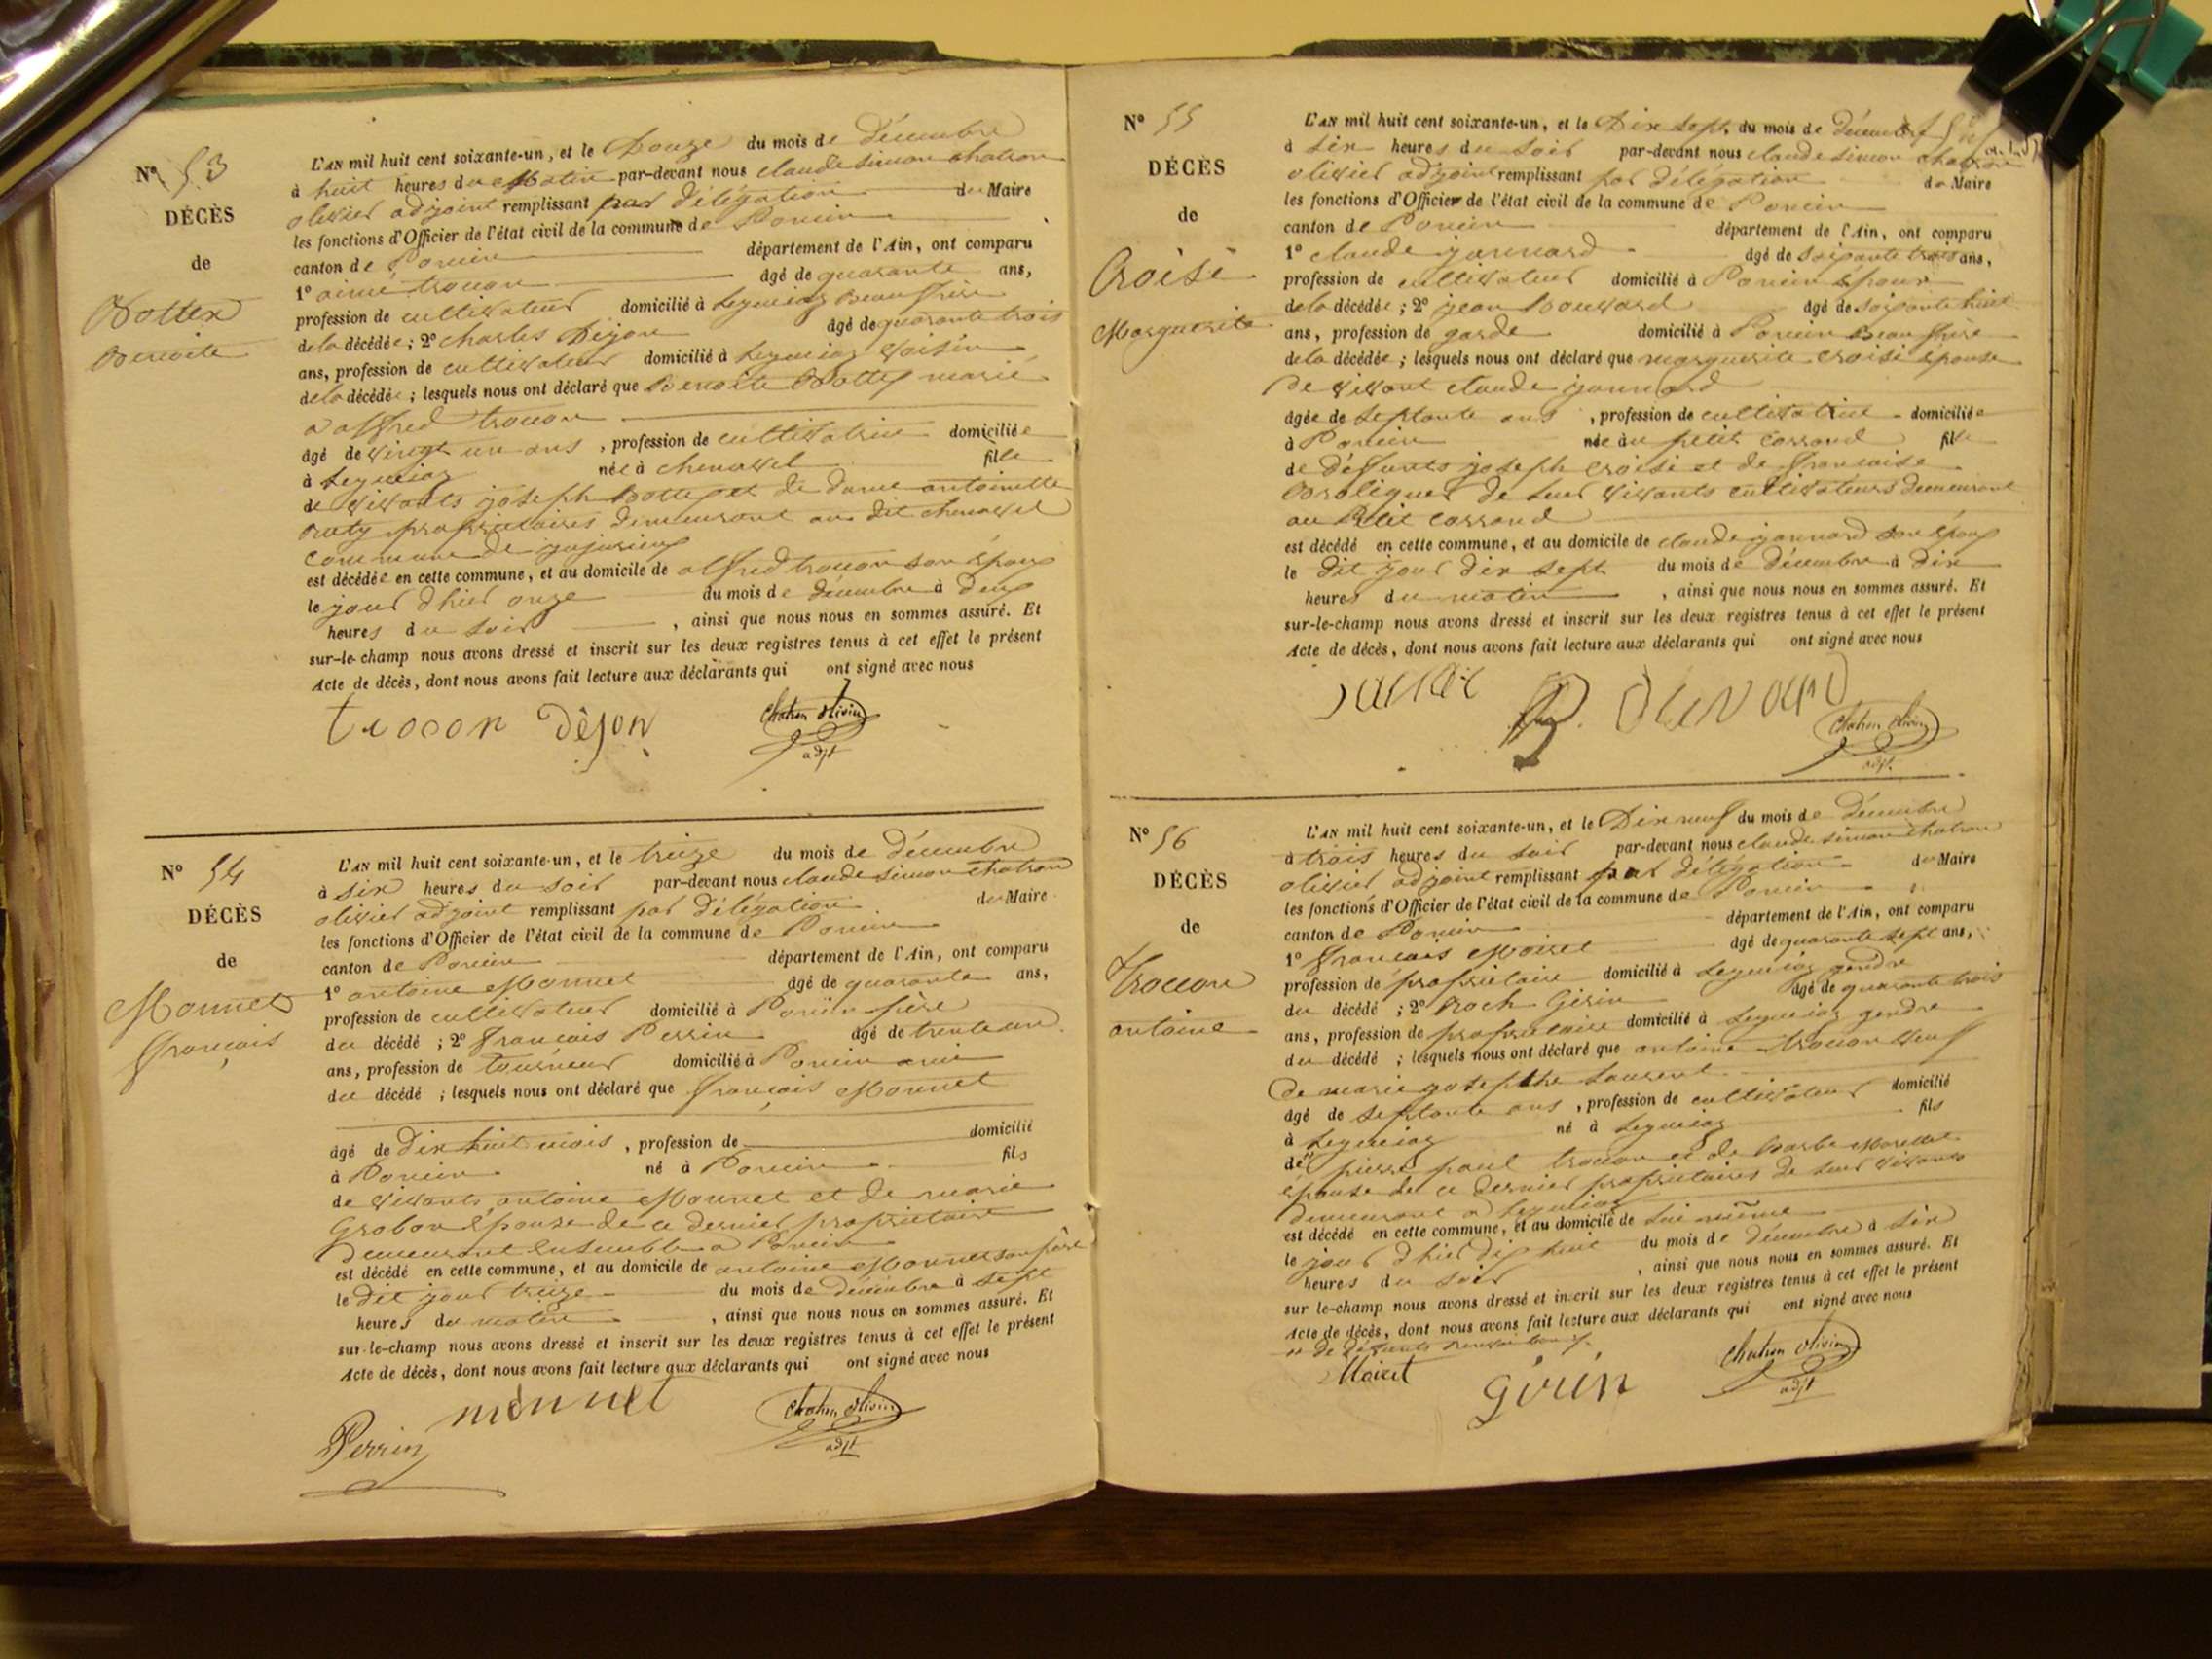 N° 53
DÉCÈS
de
Bottex
Benoite
L'AN mil huit cent soixante-un, et le Douze du mois de Décembre
à huit heures du Matin par-devant nous claude simon chatron
olivier adjoint remplissant par délégation du Maire
les fonctions d'Officier de l'état civil de la commune de Poncin
canton de Poncin département de l'Ain, ont comparu
1° aimé trocon âgé de quarante ans,
profession de cultivateur domicilié à Leymiaz Beau frère
de la décédée ; 2° charles Dejon âgé de quarante trois
ans, profession de cultivateur domicilié à Leymiaz voisin
de la décédée ; lesquels nous ont déclaré que Benoite Bottex marié
a alfred trocon
âgé de vingt un ans , profession de cultivatrice domiciliée
à Leymiaz née à chenavel fille
de vivants joseph Bottex et de dame antoinette
proprietaires demeurant au dit chenavel
commune de jujurieux
est décédée en cette commune, et au domicile de alfred trocon son époux
le jour d'hier onze du mois de décembre à deux
heures du soir , ainsi que nous nous en sommes assuré. Et
sur-le-champ nous avons dressé et inscrit sur les deux registres tenus à cet effet le présent
Acte de décès, dont nous avons fait lecture aux déclarants qui ont signé avec nous
trocon Déjon Chatron Olivier
adjt
N° 54
DÉCÈS
de
Monnet
françois
L'AN mil huit cent soixante-un, et le treize du mois de Décembre
à six heures du soir par-devant nous claude simon chatron
olivier adjoint remplissant par délégation du Maire
les fonctions d'Officier de l'état civil de la commune de Poncin
canton de Poncin département de l'Ain, ont comparu
1° antoine Monnet âgé de quarante ans,
profession de cultivateur domicilié à Poncin père
du décédé ; 2° françois Perrin âgé de trente un
ans, profession de tourneur domicilié à Poncin ami
du décédé ; lesquels nous ont déclaré que françois Monnet
âgé de Dix huit mois , profession de domicilié
à Poncin né à Poncin fils
de vivants antoine Monnet et de marie
Grobon épouse de ce dernier proprietaire
Demeurant ensemble a Poncin
est décédé en cette commune, et au domicile de antoine Monnet son père
le dit jour treize du mois de décembre à sept
heures du matin , ainsi que nous nous en sommes assuré. Et
sur-le-champ nous avons dressé et inscrit sur les deux registres tenus à cet effet le présent
Acte de décès, dont nous avons fait lecture aux déclarants qui ont signé avec nous
monnet Chatron Olivier
Perrin adjt
N° 55
DÉCÈS
de
Croisé
Marguerite
L'AN mil huit cent soixante-un, et le Dix sept du mois de décembre
à six heures du soir par-devant nous claude simon chatron
olivier adjoint remplissant par délégation du Maire
les fonctions d'Officier de l'état civil de la commune de Poncin
canton de Poncin département de l'Ain, ont comparu
1° claude âgé de soixante trois ans,
profession de cultivateur domicilié à Poncin époux
de la décédée ; 2° jean Bouvard âgé de soixante huit
ans, profession de garde domicilié à Poncin Beau frère
de la décédée ; lesquels nous ont déclaré que marguerite croisé épouse
De vivant claude
âgée de septante ans , profession de cultivatrice domiciliée
à Poncin née au petit corrand fille
de défunts joseph croisé et de françoise
de leur vivants cultivateurs demeurant
au Petit corrand
est décédé en cette commune, et au domicile de claude son époux
le dit jour dix sept du mois de décembre à dix
heures du matin , ainsi que nous nous en sommes assuré. Et
sur-le-champ nous avons dressé et inscrit sur les deux registres tenus à cet effet le présent
Acte de décès, dont nous avons fait lecture aux déclarants qui ont signé avec nous
Chatron Olivier
adjt
N° 56
DÉCÈS
de
Trocon
antoine
L'AN mil huit cent soixante-un, et le Dix neuf du mois de Décembre
à trois heures du soir par-devant nous claude simon chatron
olivier adjoint remplissant par délégation du Maire
les fonctions d'Officier de l'état civil de la commune de Poncin
canton de Poncin département de l'Ain, ont comparu
1° françois Moiret âgé de quarante sept ans,
profession de proprietaire domicilié à Leymiaz gendre
du décédé ; 2° Roch Gérin âgé de quarante trois
ans, profession de proprietaire domicilié à Leymiaz gendre
du décédé ; lesquels nous ont déclaré que antoine trocon veuf
De marie josephte Laurent
âgé de septante ans , profession de cultivateur domicilié
à Leymiaz né à Leymiaz fils
de pierre paul trocon et de Barbe Morellet
épouse de ce dernier proprietaires de leur vivants
demeurant a Leymiaz
est décédé en cette commune, et au domicile de lui même
le jour d'hier dix huit du mois de décembre à six
heures du soir , ainsi que nous nous en sommes assuré. Et
sur le-champ nous avons dressé et inscrit sur les deux registres tenus à cet effet le présent
Acte de décès, dont nous avons fait lecture aux déclarants qui ont signé avec nous
de défunts
Moiret Gérin Chatron Olivier
adjt